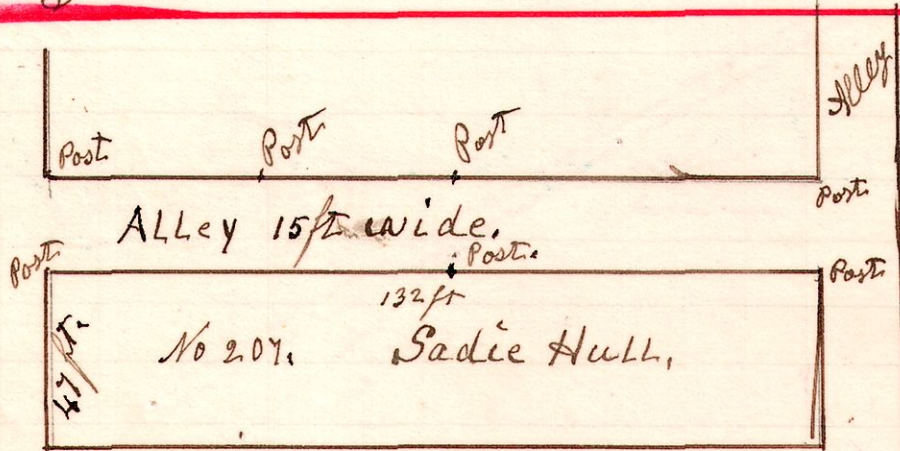 Alley
Post
Post
Post
Post
Alley 15ft wide.
Post
Post.
Post
132ft
47ft.
No 207.
Sadie Hull.